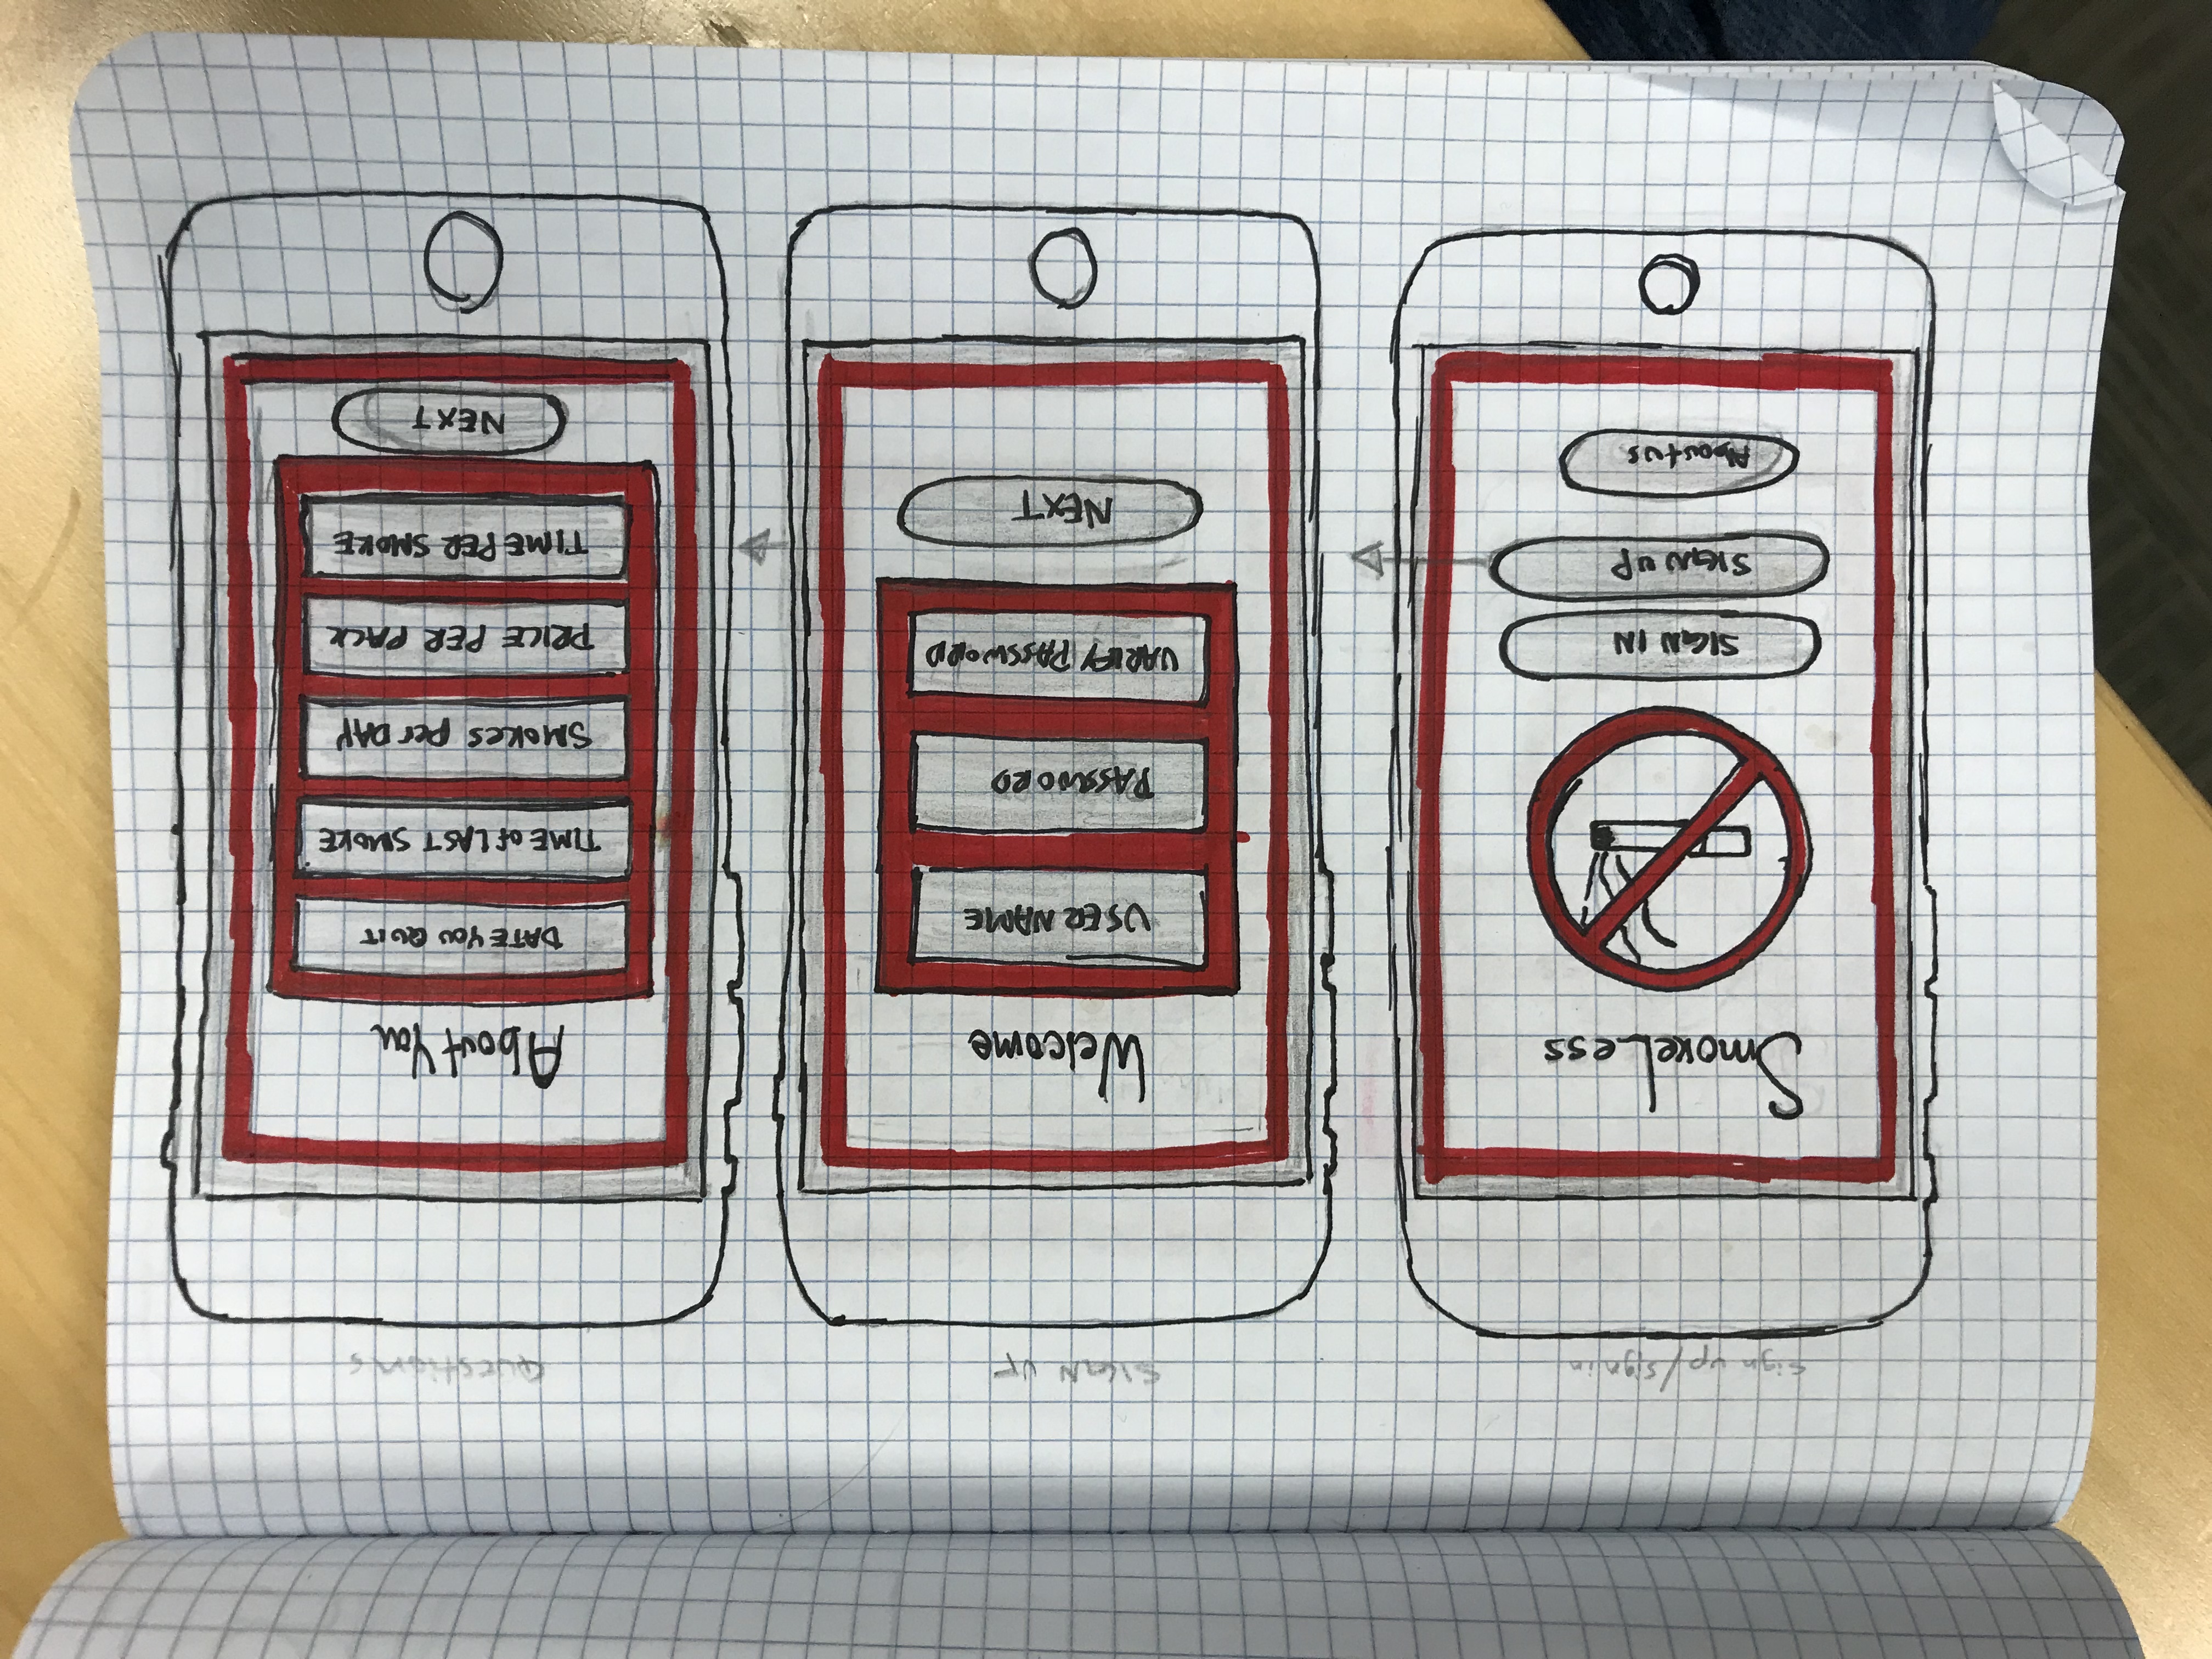 sign up/signin
SmokeLess
SIGN IN
SIGN UP
About us
SIGN UP
Welcome
USERNAME
PASSWORD
VARIFY PASSWORD
NEXT
Questions
About You
DATE YOU QUIT
TIME OF LAST SMOKE
SMOKES PER DAY
PRICE PER PACK
TIME PER SMOKE
NEXT